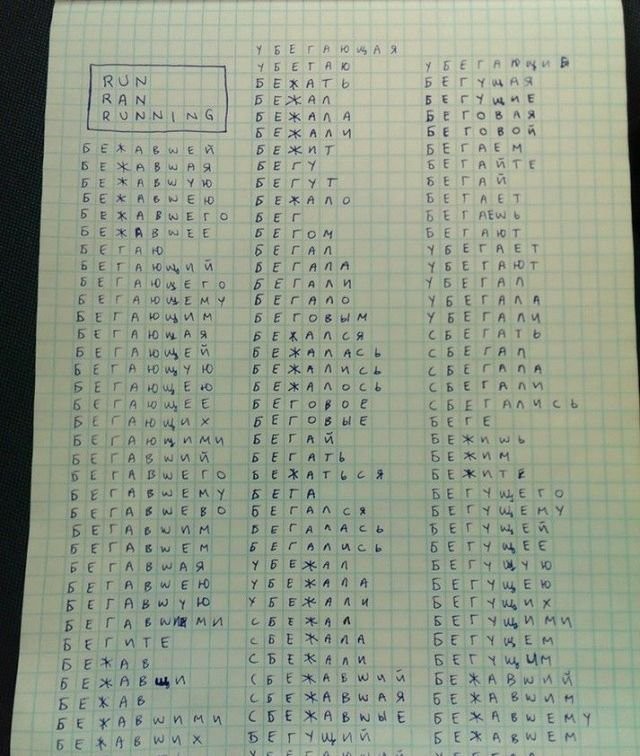 RUN
RAN
RUNNING
БЕЖАВШЕЙ
БЕЖАВШАЯ
БЕЖАВШУЮ
БЕЖАВШЕЮ
БЕЖАВШЕГО
БЕЖАВШЕЕ
БЕГАЮ
БЕГАЮЩИЙ
БЕГАЮЩЕГО
БЕГАЮЩЕМУ
БЕГАЮЩИМ
БЕГАЮЩАЯ
БЕГАЮЩЕЙ
БЕГАЮЩУЮ
БЕГАЮЩЕЮ
БЕГАЮЩЕЕ
БЕГАЮЩИХ
БЕГАЮЩИМИ
БЕГАВШИЙ
БЕГАВШЕГО
БЕГАВШЕМУ
БЕГАВШЕВО
БЕГАВШИМ
БЕГАВШЕМ
БЕГАВШАЯ
БЕГАВШЕЮ
БЕГАВШУЮ
БЕГАВШИМИ
БЕГИТЕ
БЕЖАВ
БЕЖАВЩИ
БЕЖАВ
БЕЖАВШИМИ
БЕЖАВШИХ
УБЕГАЮЩАЯ
УБЕГАЮ
БЕЖАТЬ
БЕЖАЛ
БЕЖАЛА
БЕЖАЛИ
БЕЖИТ
БЕГУ
БЕГУТ
БЕЖАЛО
БЕГ
БЕГОМ
БЕГАЛ
БЕГАЛА
БЕГАЛИ
БЕГАЛО
БЕГОВЫМ
БЕЖАЛСЯ
БЕЖАЛАСЬ
БЕЖАЛИСЬ
БЕЖАЛОСЬ
БЕГОВОЕ
БЕГОВЫЕ
БЕГАЙ
БЕГАТЬ
БЕЖАТЬСЯ
БЕГА
БЕГАЛСЯ
БЕГАЛАСЬ
БЕГАЛИСЬ
УБЕЖАЛ
УБЕЖАЛА
УБЕЖАЛИ
СБЕЖАЛ
СБЕЖАЛА
СБЕЖАЛИ
СБЕЖАВШИЙ
СБЕЖАВШАЯ
СБЕЖАВШЫЕ
БЕГУЩИЙ
БЕГУЩАЯ
БЕГУЩИЕ
БЕГОВАЯ
БЕГОВОЙ
БЕГАЕМ
БЕГАЙТЕ
БЕГАЙ
БЕГАЕТ
БЕГАЕШЬ
БЕГАЮТ
УБЕГАЕТ
УБЕГАЮТ
УБЕГАЛ
УБЕГАЛА
УБЕГАЛИ
СБЕГАТЬ
СБЕГАЛ
СБЕГАЛА
СБЕГАЛИ
СБЕГАЛИСЬ
БЕГЕ
БЕЖИШЬ
БЕЖИМ
БЕЖИТЕ
БЕГУЩЕГО
БЕГУЩЕМУ
БЕГУЩЕЙ
БЕГУЩЕЕ
БЕГУЩУЮ
БЕГУЩЕЮ
БЕГУЩИХ
БЕГУЩИМИ
БЕГУЩЕМ
БЕГУЩЫМ
БЕЖАВШИЙ
БЕЖАВШИМ
БЕЖАВШЕМУ
БЕЖАВШЕМ